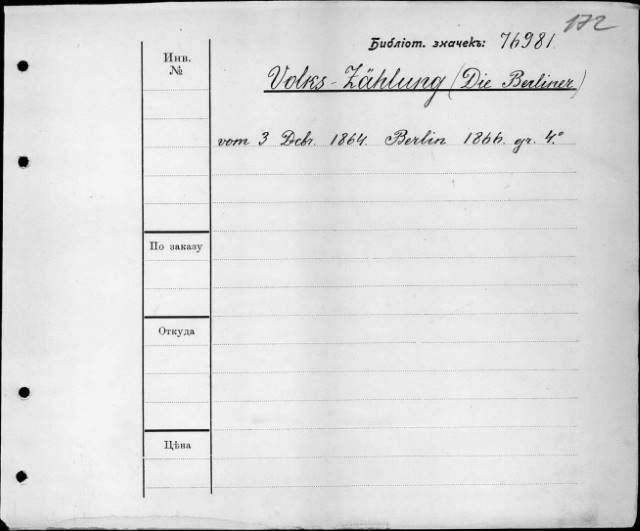 172
Библіот. значекъ: 76981.
Инв.
№
Volks-Zählung (Die Berliner)
vom 3 Dcbr. 1864. Berlin 1866. gr. 4.°
По заказу
Откуда
Цѣна